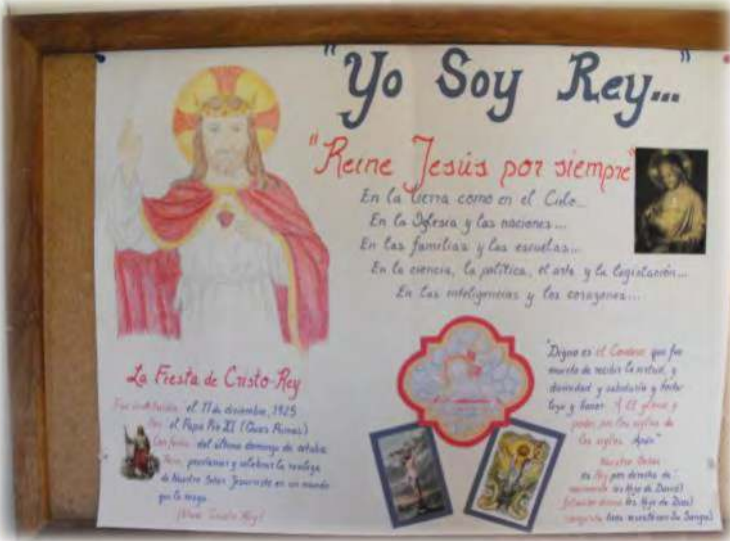 "Yo Soy Rey..."
"Reine Jesús por siempre"
En la tierra como en el Cielo...
En la Iglesia y las naciones...
En las familias y las escuelas...
En la ciencia, la política, el arte y la legislación...
En las inteligencias y los corazones...
La Fiesta de Cristo Rey
Fue instituida: el 11 de diciembre, 1925
Por: el Papa Pío XI (Quas Primas)
Con fecha: del último domingo de octubre
Para: proclamar y celebrar la realeza
de Nuestro Señor Jesucristo en un mundo
que lo niega.
¡Viva Cristo Rey!
"Digno es el Cordero que fue
muerto de recibir la virtud, y
divinidad y sabiduría y
y honor. A Él gloria y
poder por los siglos de
los siglos. Amén"
Nuestro Señor
es Rey por derecho de:
nacimiento (es Hijo de David)
(es Hijo de Dios)
conquista (nos rescató con Su Sangre)